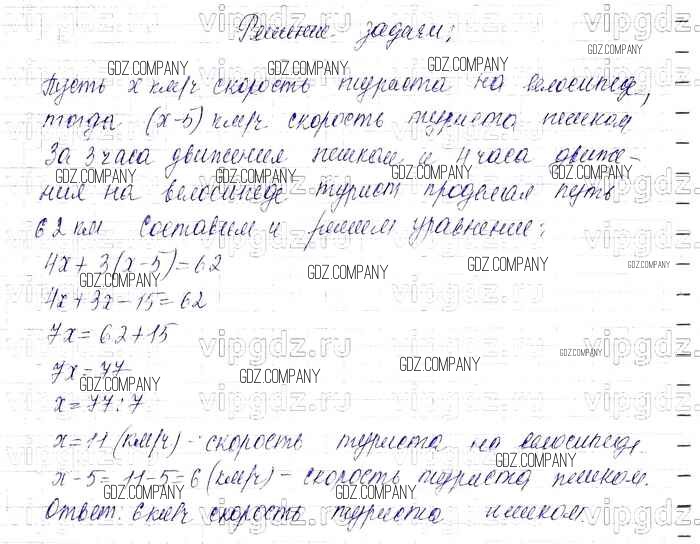 Решение задачи:
Пусть х км/ч скорость туриста на велосипеде,
тогда (х-5) км/ч скорость туриста пешком
За 3 часа движения пешком и 4 часа движе-
ния на велосипеде турист проделал путь
62 км Составим и решаем уравнение:
4х + 3(х-5) = 62
4х + 3х - 15 = 62
7х = 62 + 15
7х = 77
х = 77 : 7
х = 11 (км/ч) - скорость туриста на велосипеде.
х - 5 = 11 - 5 = 6 (км/ч) - скорость туриста пешком.
Ответ: 6 км/ч скорость туриста пешком.
vipgdz.ru
GDZ.COMPANY